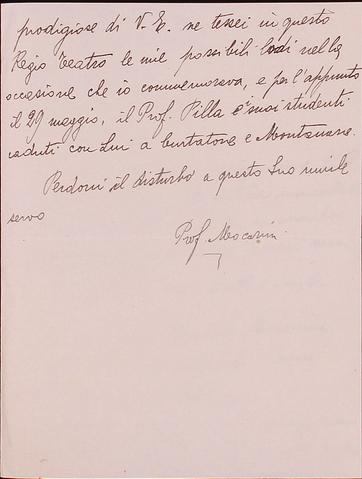 prodigiose di V. E. ne tessei in questo
Regio teatro le mie possibili lodi nella
occasione che io commemorava, e per l'appunto
il 29 maggio, il Prof. Pilla e i suoi studenti
caduti con Lui a Curtatone e Montanara.
Perdoni il disturbo a questo Suo umile
servo
Prof.